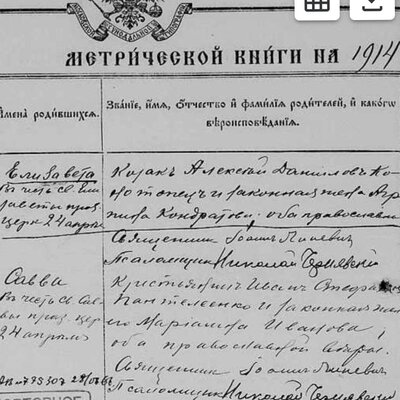 МЕТРИЧЕСКОЙ КНИГИ НА 1914
Имена родившихся.
Званіе, имя, отчество и фамилія родителей, и какого
вѣроисповѣданія.
Елизавета
въ честь св. Ели
заветы праз.
церк 24 апрѣл
Козакъ Алексѣй Даниловъ Ко
нотопецъ и законная жена Агри
пина Кондратова, оба православн
Священникъ Іоаннъ
Псаломщикъ Николай Чернявскій
Савва
въ честь св. Сав
вы праз. цер
24 апрѣля
Крестьянинъ
Пантелеенко и законная
его Маріамна Иванова,
оба православной вѣры.
Священникъ Іоаннъ
Псаломщикъ Николай Чернявскій